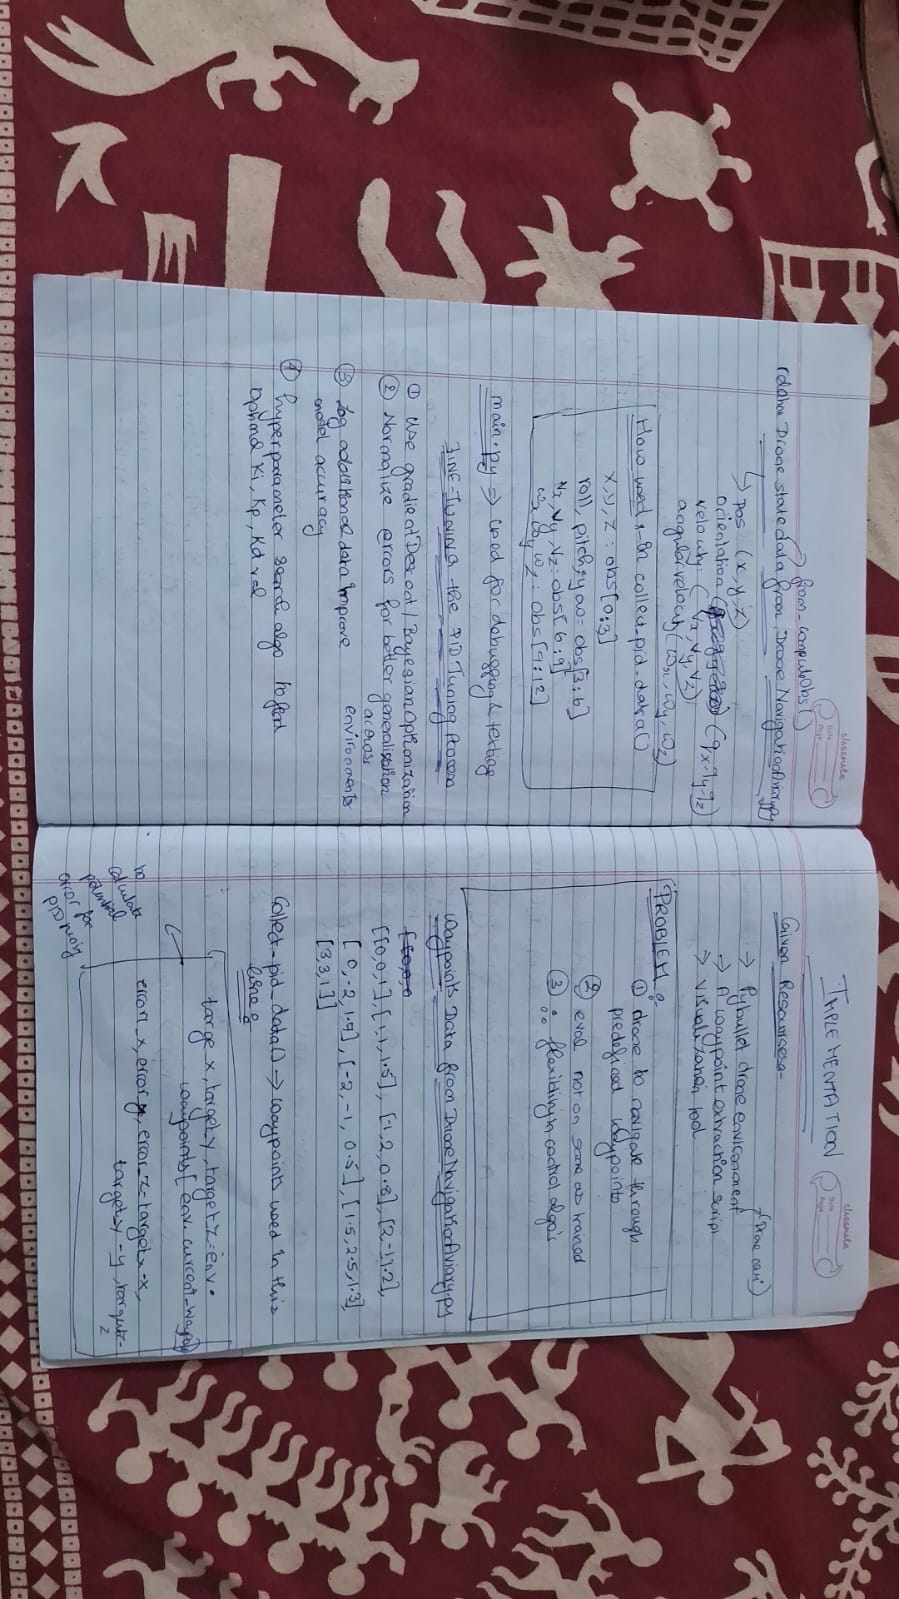 classmate
Date
Page
from _computeObs()
Drone state data from DroneNavigationAviary.py
↳ pos (x, y, z)
orientation (qx, qy, qz)
velocity (vx, vy, vz)
angular velocity (ωx, ωy, ωz)
How used :- in collect_pid_data()
x, y, z : obs[0:3]
roll, pitch, yaw = obs[3:6]
vx, vy, vz = obs[6:9]
ωx, ωy, ωz = obs[9:12]
main.py ⇒ used for debugging & testing
FINE-TUNING the PID Tuning Process
① Use gradient Descent / Bayesian Optimization
② Normalize errors for better generalisation across environments
③ Log additional data improve
model accuracy
④ hyperparameter search algo to find
optimal Ki, Kp, Kd val
classmate
Date
Page
IMPLEMENTATION
Given Resources:-
→ Pybullet drone environment
→ A waypoint extraction script
→ visualization tool
PROBLEM :
① drone to navigate through
predefined waypoints
② eval not on same as trained
③ : flexibility in control algo's
Waypoints Data from DroneNavigationAviary.py
[[0,0,1], [1,1,1.5], [-1,2,0.8], [2,-1,1.2],
[0,-2,1.9], [-2,-1,0.5], [1.5,2.5,1.3],
[3,3,1]]
Collect_pid_data() → waypoints used in this
line :
target x, target y, target z = env.
waypoints[env.current_wayp
error_x, error_y, error_z = target x - x,
target y - y, target z -
to
calculate
potential
error for